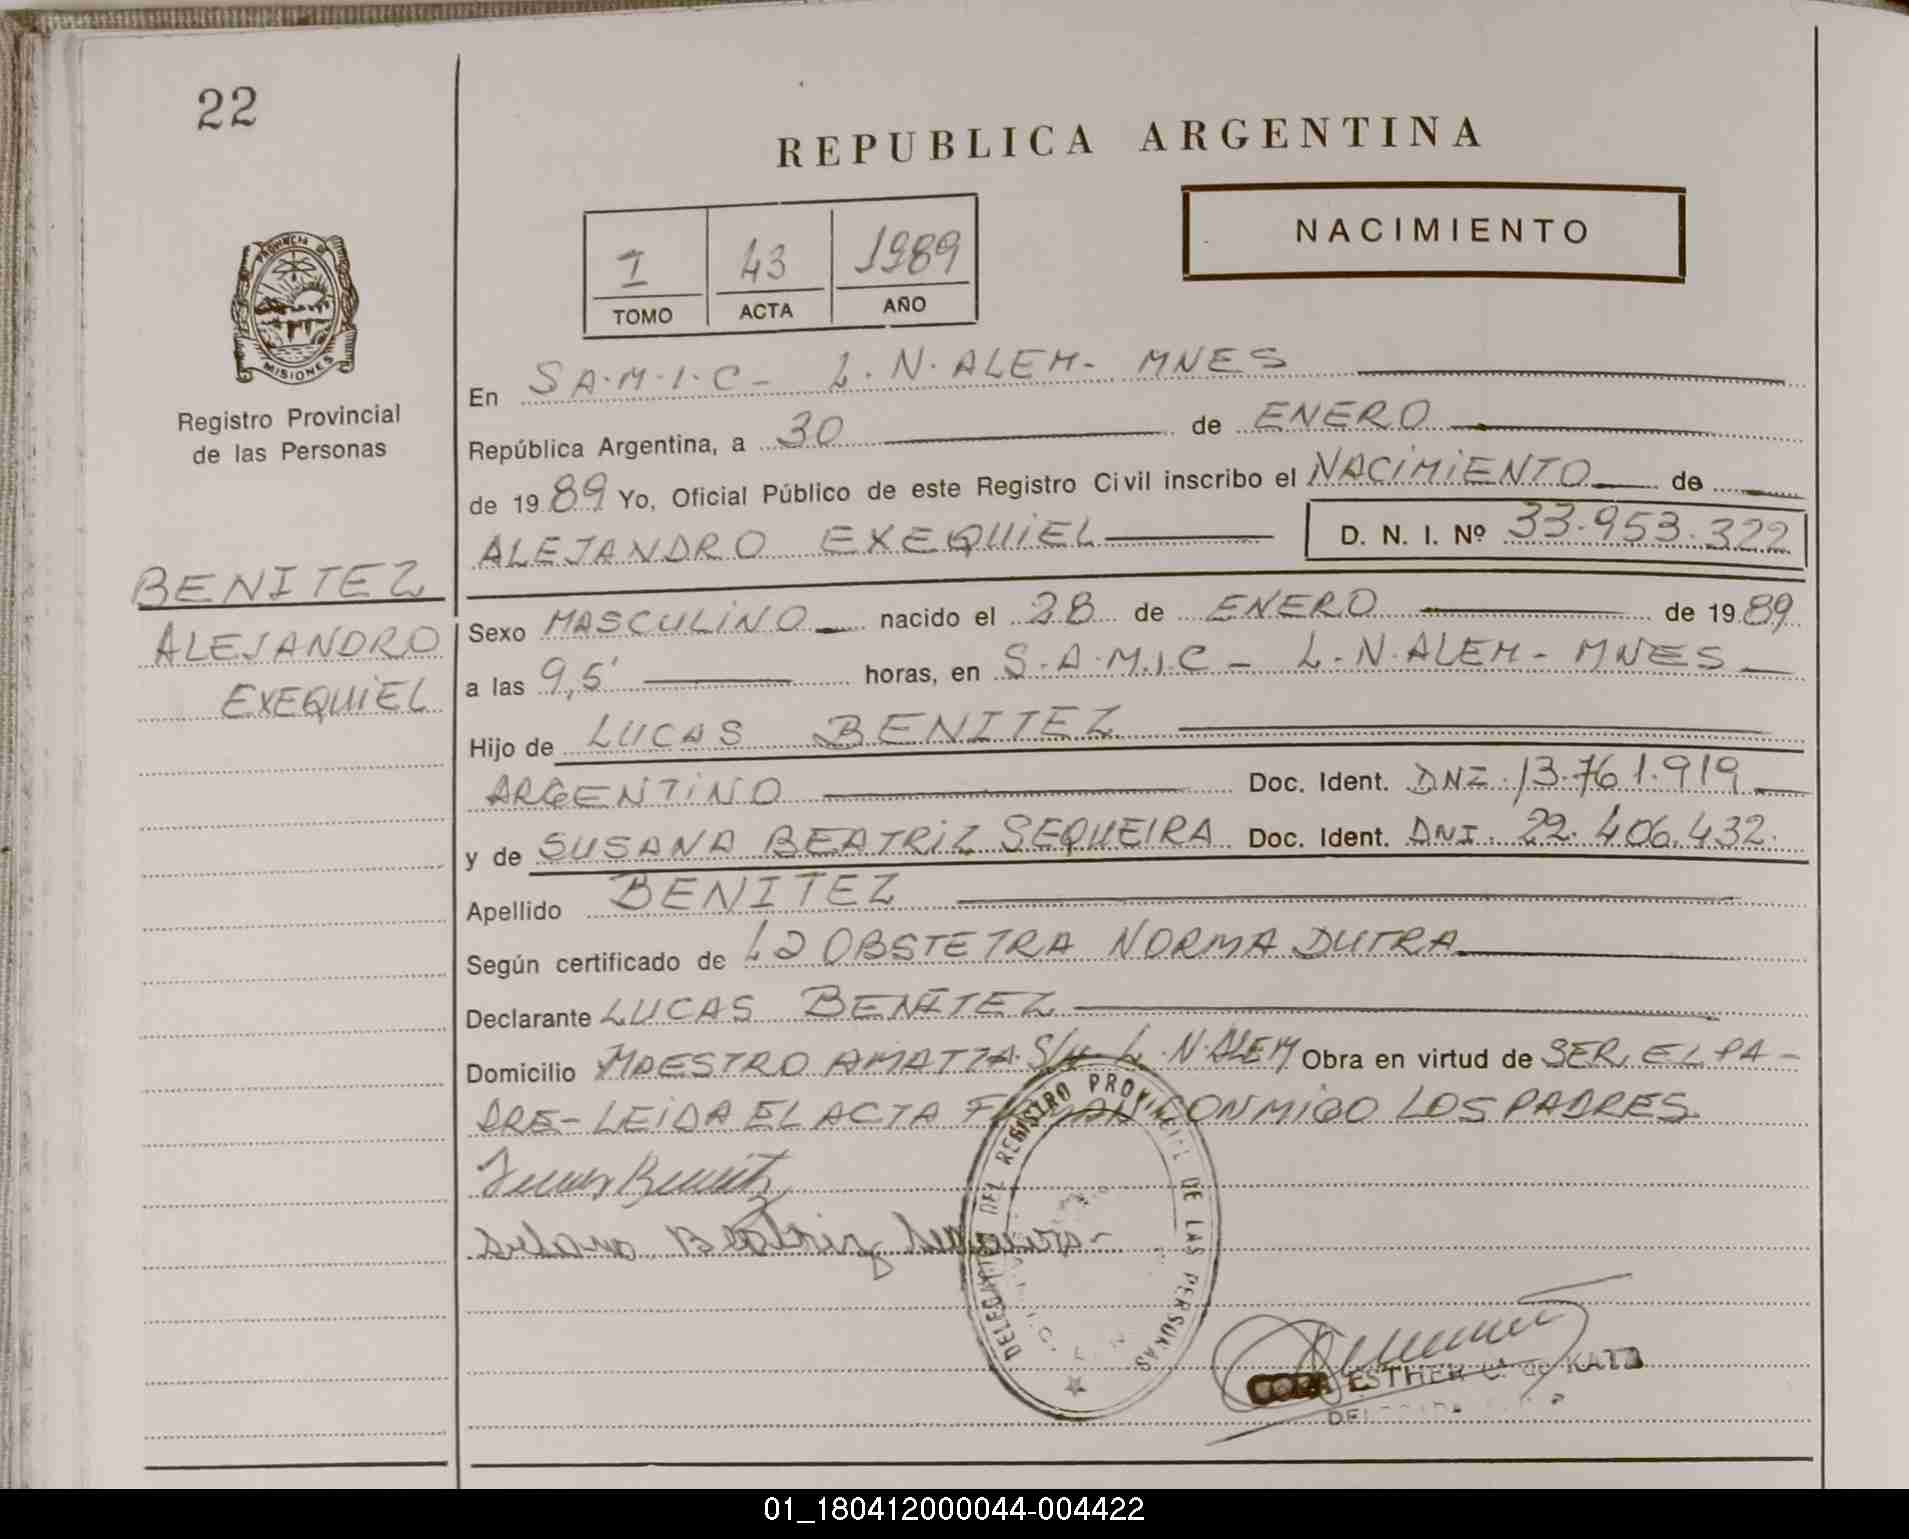 22
REPUBLICA ARGENTINA
NACIMIENTO
I 43 1989
TOMO ACTA AÑO
PROVINCIA DE MISIONES
Registro Provincial
de las Personas
BENITEZ
ALEJANDRO
EXEQUIEL
En S.A.M.I.C- L.N.ALEM- MNES
República Argentina, a 30 de ENERO
de 1989 Yo, Oficial Público de este Registro Civil inscribo el NACIMIENTO de
ALEJANDRO EXEQUIEL D. N. I. Nº 33.953.322
Sexo MASCULINO nacido el 28 de ENERO de 1989
a las 9,5' horas, en S.A.M.I.C- L.N.ALEM- MNES
Hijo de LUCAS BENITEZ
ARGENTINO Doc. Ident. DNI. 13.761.919
y de SUSANA BEATRIZ SEQUEIRA Doc. Ident. DNI. 22.406.432.
Apellido BENITEZ
Según certificado de La OBSTETRA NORMA DUTRA
Declarante LUCAS BENITEZ
Domicilio MAESTRO S/N- L.N.ALEM Obra en virtud de SER EL PA-
DRE- LEIDA EL ACTA FIRMAN CONMIGO LOS PADRES
Benitez
DEL REGISTRO PROVINCIAL DE LAS PERSONAS
ESTHER de KATZ
01_180412000044-004422